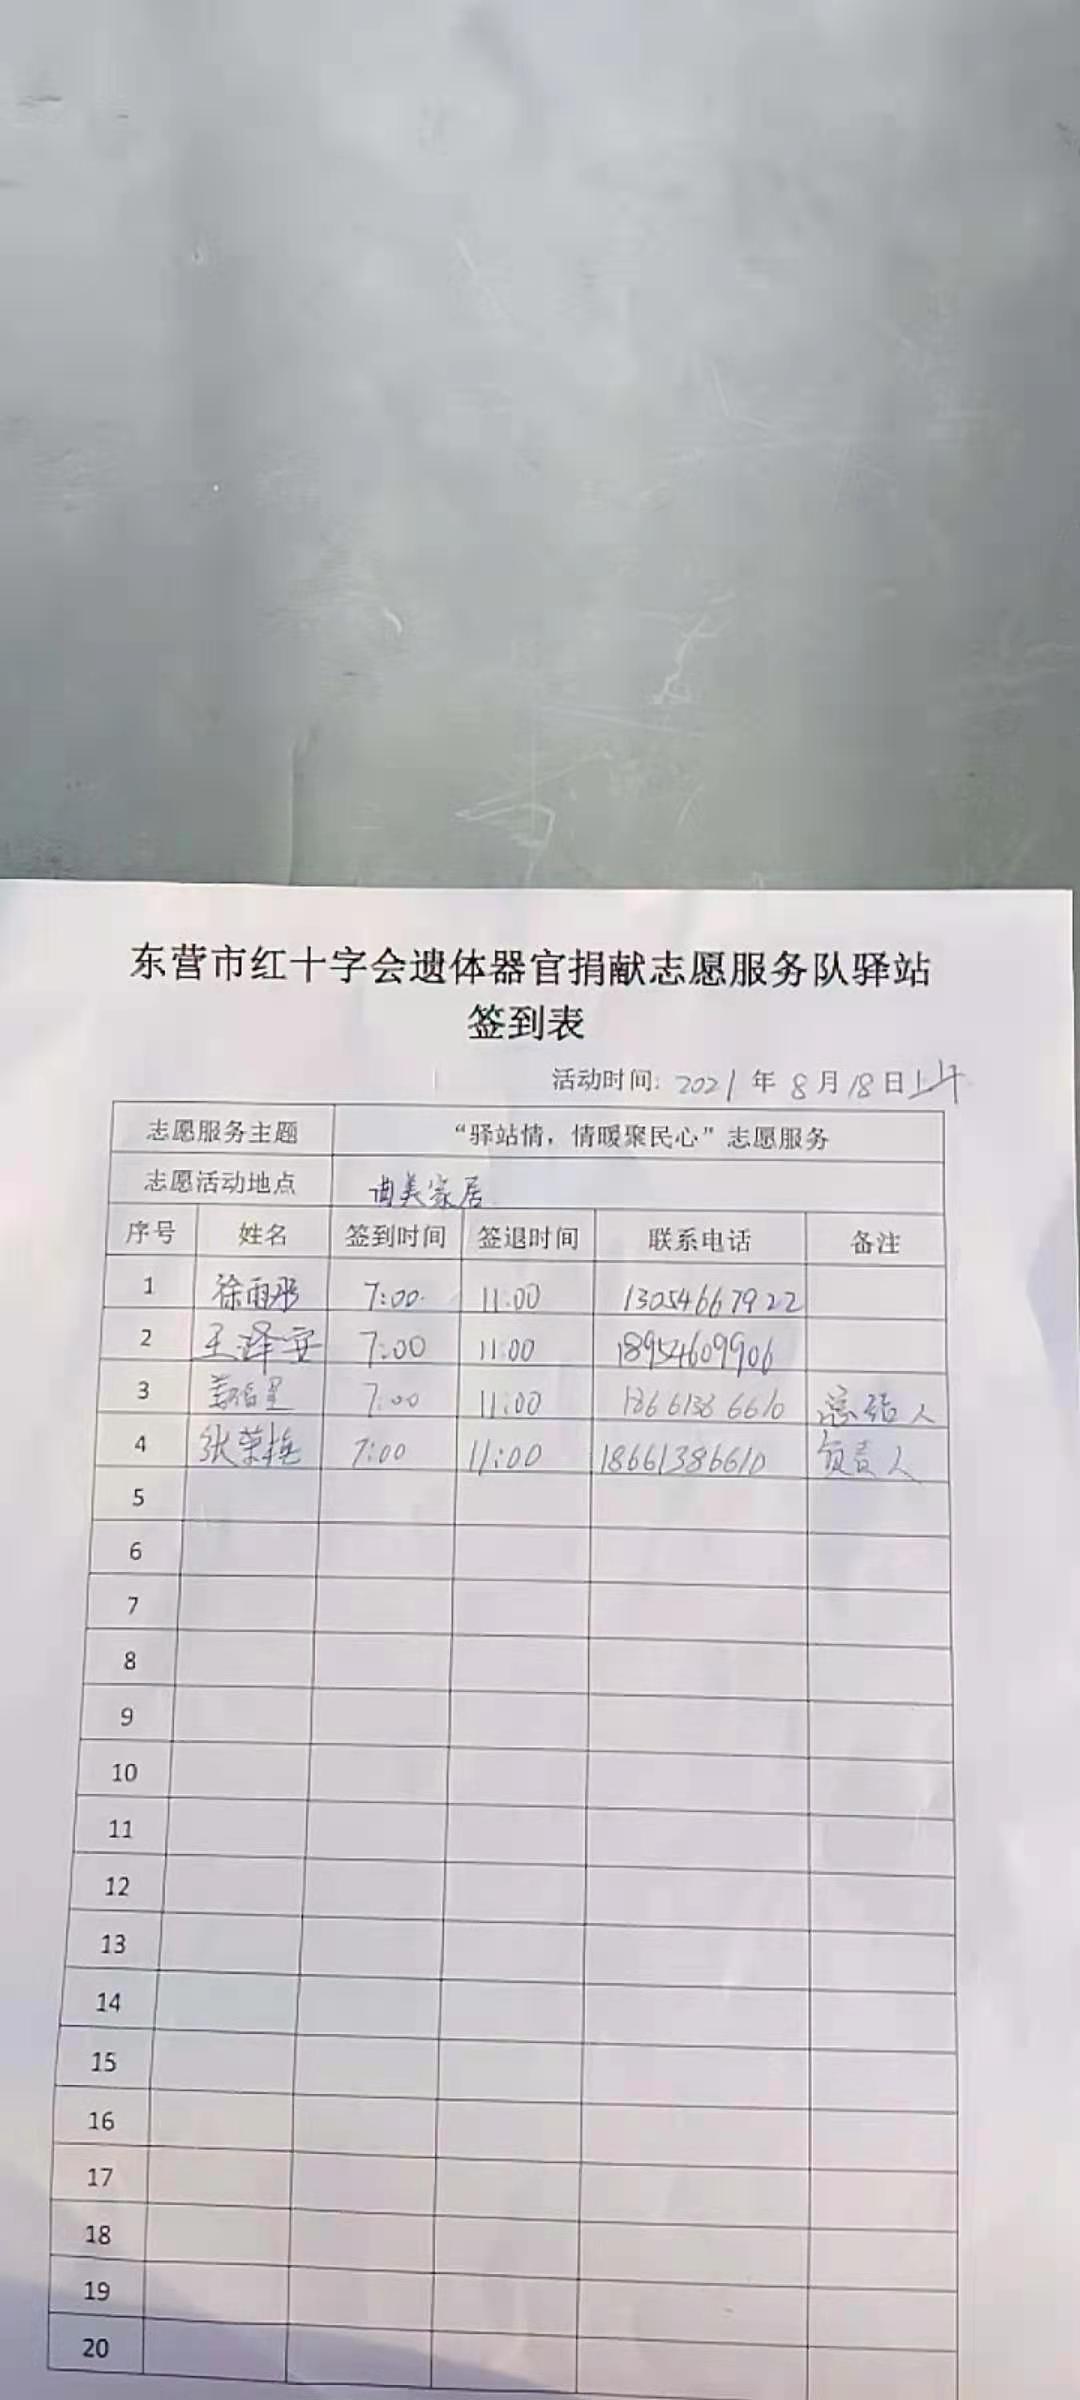 东营市红十字会遗体器官捐献志愿服务队驿站
签到表
活动时间: 2021年8月18日上午
志愿服务主题 “驿站情，情暖聚民心”志愿服务
志愿活动地点 曲美家居
序号 姓名 签到时间 签退时间 联系电话 备注
1 徐雨彤 7:00 11:00 13054667922
2 王泽安 7:00 11:00 18954609906
3 7:00 11:00 18661386610 总结人
4 张荣梅 7:00 11:00 18661386610 负责人
5
6
7
8
9
10
11
12
13
14
15
16
17
18
19
20